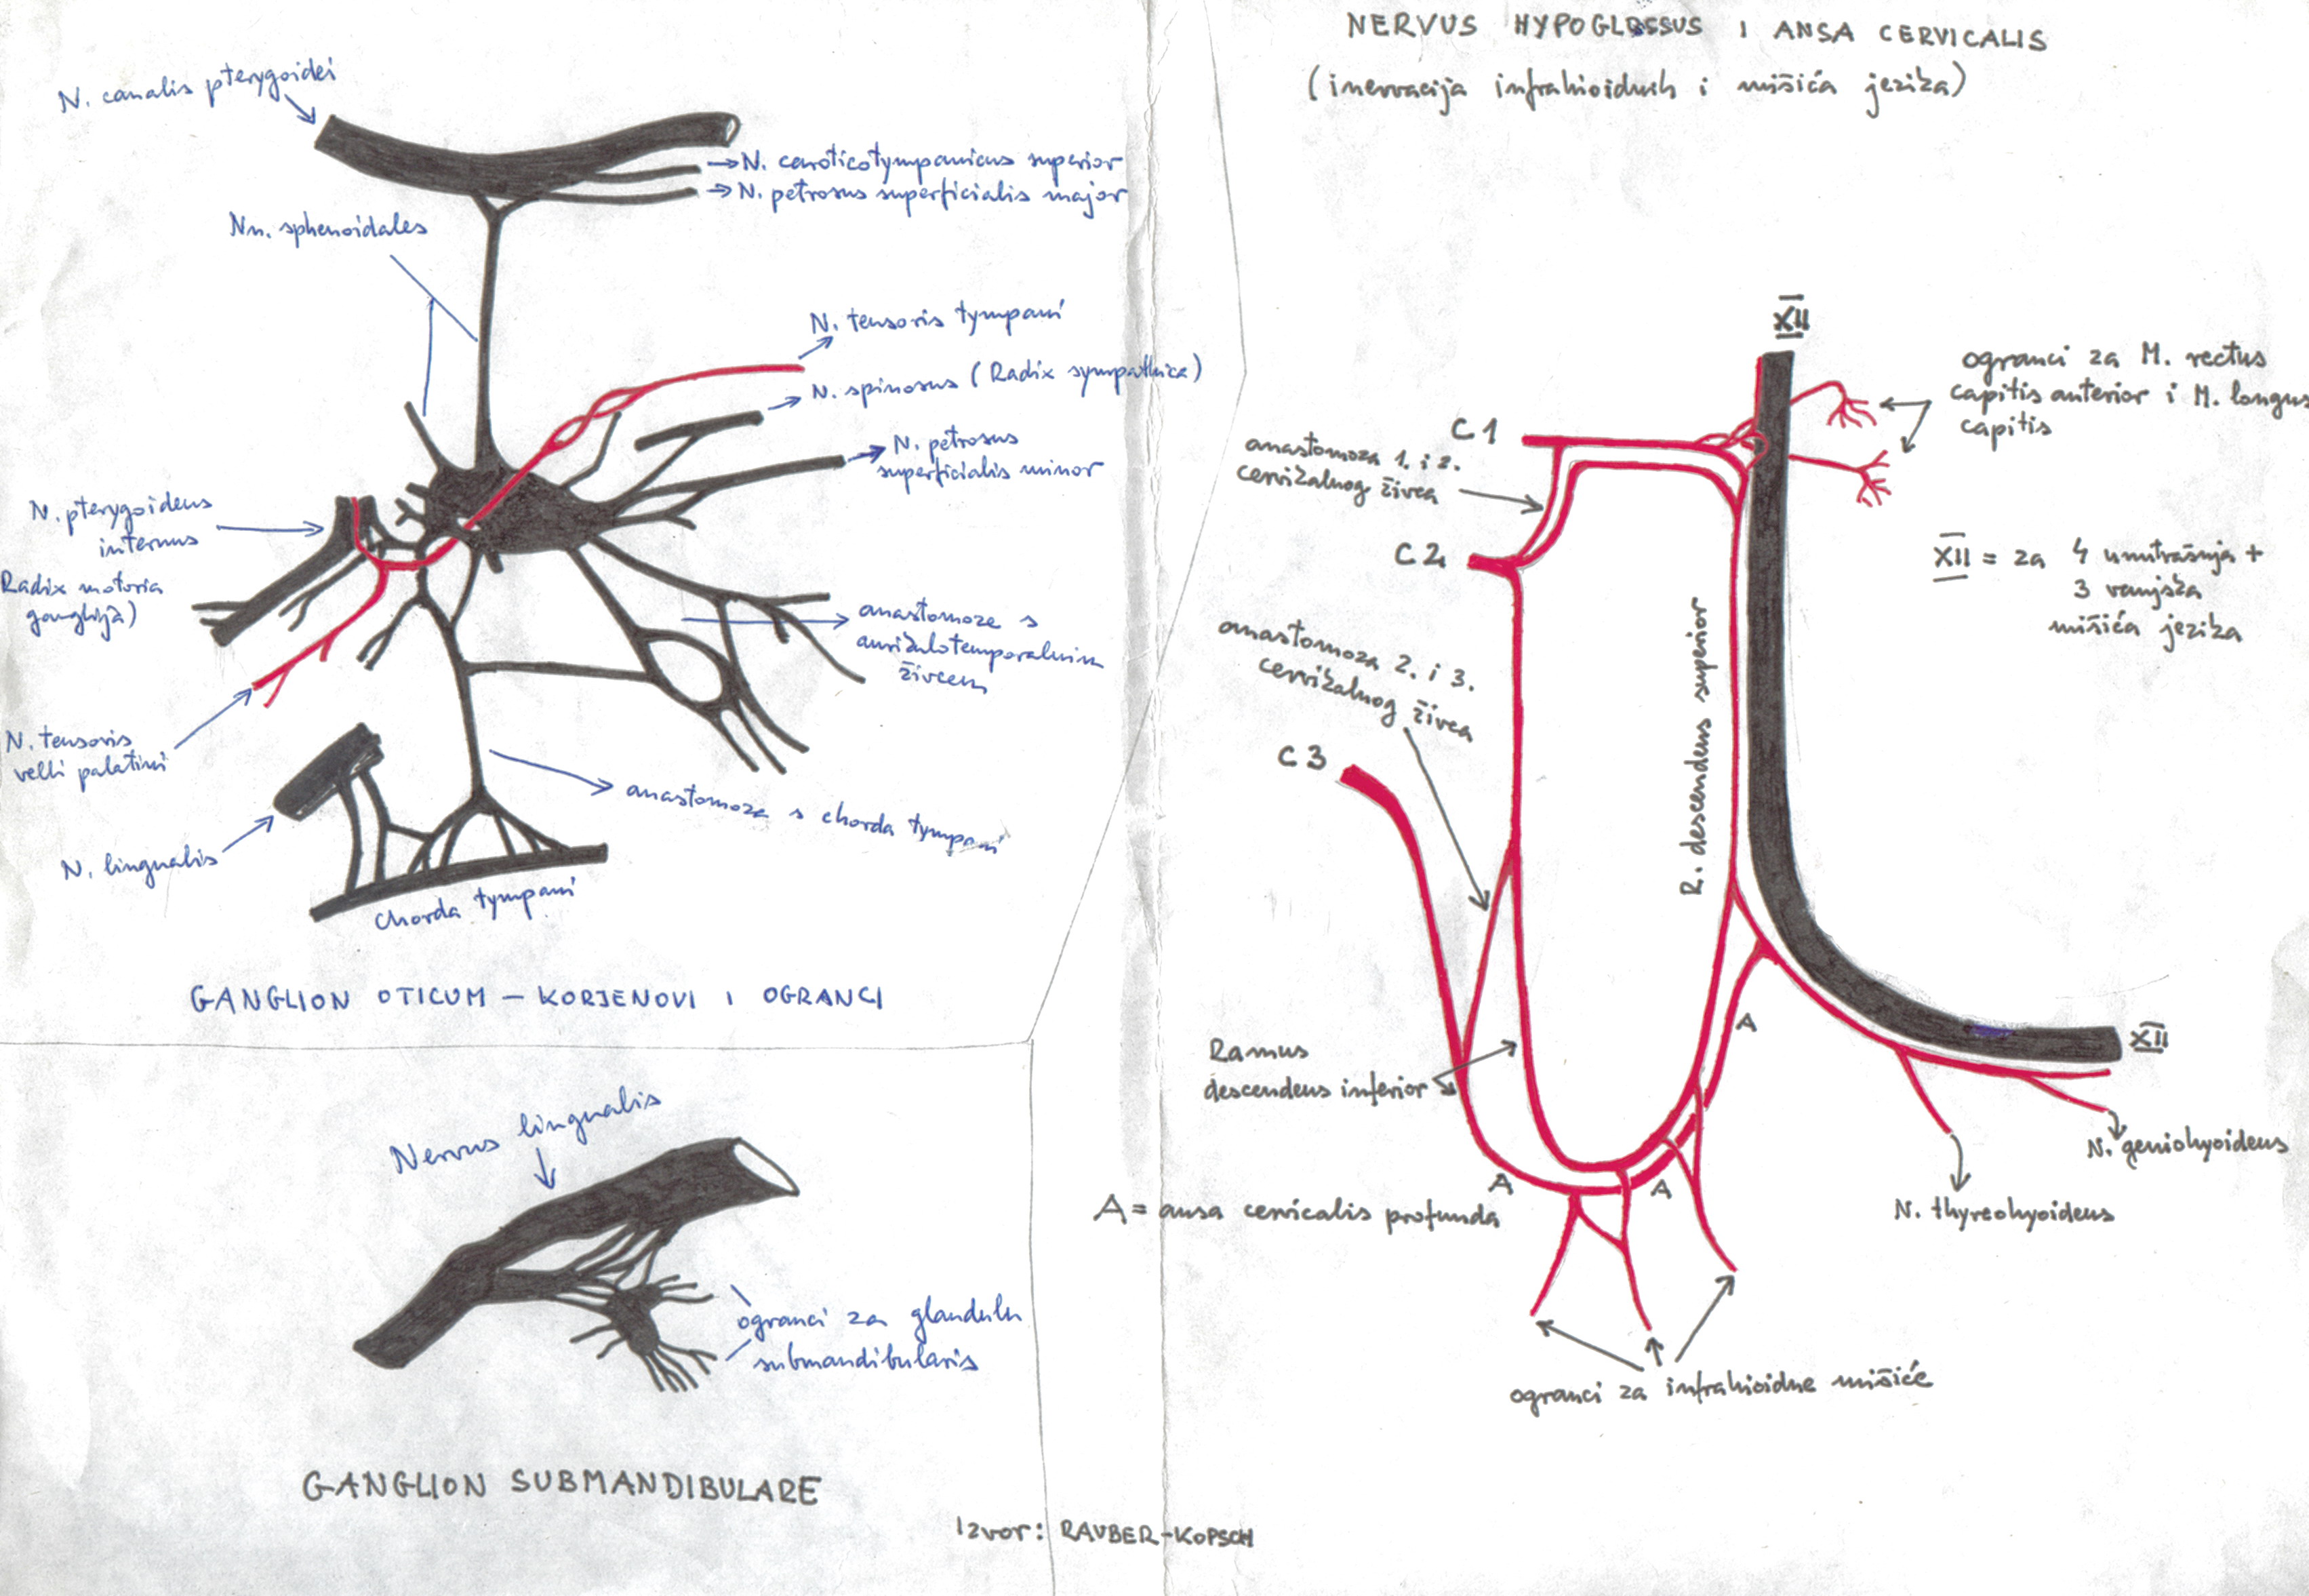 N. canalis pterygoidei
N. caroticotympanicus superior
N. petrosus superficialis major
Nn. sphenoidales
N. tensoris tympani
N. spinosus (Radix sympathica)
N. petrosus
superficialis minor
N. pterygoideus
internus
Radix motoria
ganglija)
anastomoze s
aurikulotemporalnim
živcem
N. tensoris
velli palatini
anastomoza s chorda tympani
N. lingualis
chorda tympani
GANGLION OTICUM – KORJENOVI I OGRANCI
Nervus lingualis
ogranci za glandulu
submandibularis
GANGLION SUBMANDIBULARE
Izvor: RAUBER-KOPSCH
NERVUS HYPOGLOSSUS I ANSA CERVICALIS
(inervacija infrahioidnih i mišića jezika)
XII
ogranci za M. rectus
capitis anterior i M. longus
capitis
C1
anastomoza 1. i 2.
cervikalnog živca
C2
XII = za 4 unutrašnja +
3 vanjska
mišića jezika
anastomoza 2. i 3.
cervikalnog živca
C3
R. descendens superior
Ramus
descendens inferior
A
XII
N. geniohyoideus
N. thyreohyoideus
A
A
A = ansa cervicalis profunda
ogranci za infrahioidne mišiće